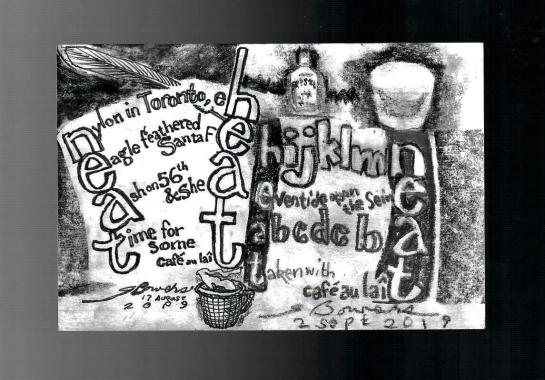 nylon in Toronto, eh
eagle feathered
Santa Fe
ash on 56th
& Shea
time for
some
café au lait
Bowers
17 August
hijklmn
eventide upon
the Seine
abcde
taken with
café au lait
Bowers
2 Sept 2019